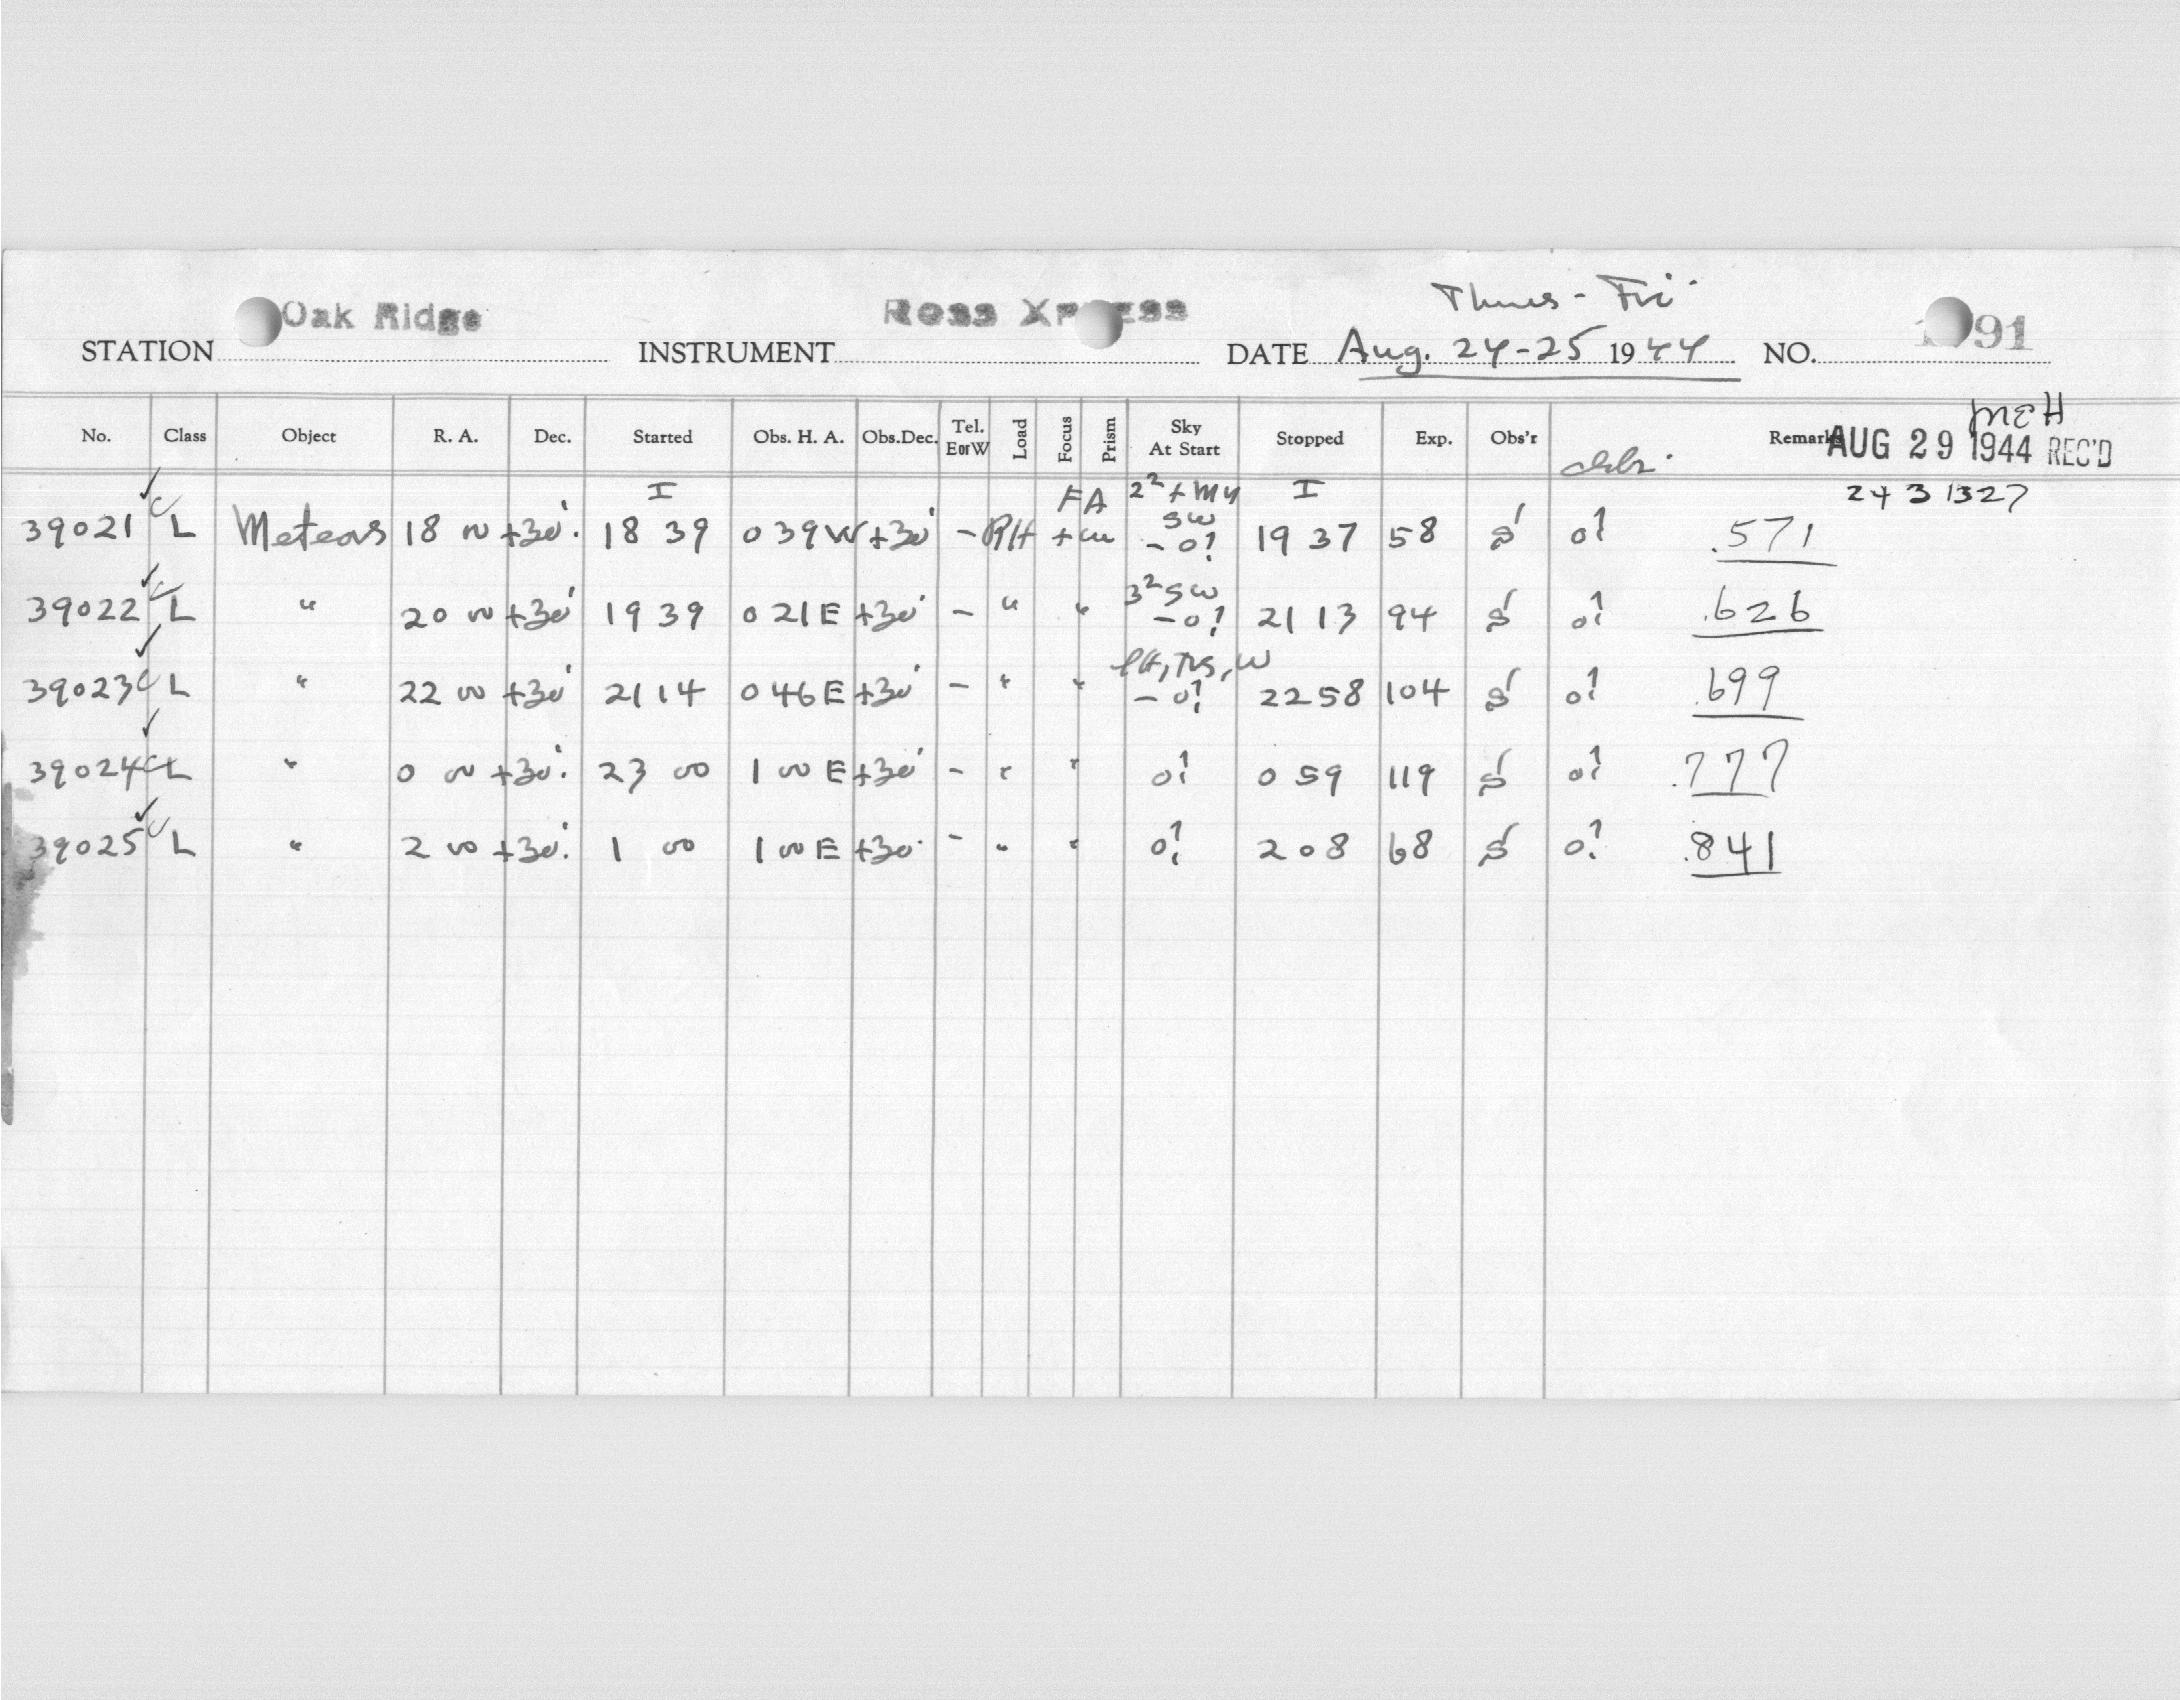 Thurs - Fri.
STATION Oak Ridge INSTRUMENT Ross Xpress DATE Aug. 24-25 1944 NO. 91
No. Class Object R. A. Dec. Started Obs. H. A. Obs.Dec. Tel. EorW Load Focus Prism Sky At Start Stopped Exp. Obs'r Remarks
MEH
AUG 29 1944 REC'D
I FA 2² + I 243 1327
39021 ✓ C L Meteors 18 00 +30° 18 39 0 39 W +30° - RH + SW - 0? 19 37 58 S 0? .571
39022 ✓ C L " 20 00 +30° 19 39 0 21 E +30° - " " 3² SW - 0? 21 13 94 S 0? .626
39023 ✓ C L " 22 00 +30° 21 14 0 46 E +30° - " " W - 0? 22 58 104 S 0? .699
39024 ✓ C L " 0 00 +30° 23 00 1 00 E +30° - " " 0? 0 59 119 S 0? .777
39025 ✓ C L " 2 00 +30° 1 00 1 00 E +30° - " " 0? 2 08 68 S 0? .841